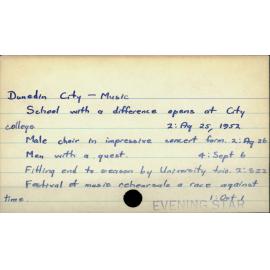 Dunedin City - Music
School with a difference opens at City
college 2: Ag 25, 1952
Male choir in impressive concert form. 2: Ag 26
Men with a quest. 4: Sept 6
Fitting end to season by University trio. 2:
Festival of music rehearsals a race against
time. 1: Oct 1
EVENING STAR